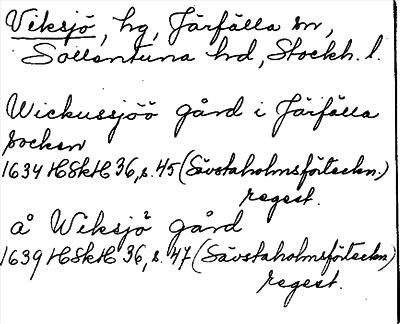 Viksjö, hg, Järfälla sn,
Sollentuna hd, Stockh. l.
Wickussjöö gård i Järfälla
socken
1634 HSkH 36, s. 45 (Sävstaholmsförteckn.)
regest.
å Wiksjö² gård
1639 HSkH 36, s. 47 (Sävstaholmsförteckn.)
regest.